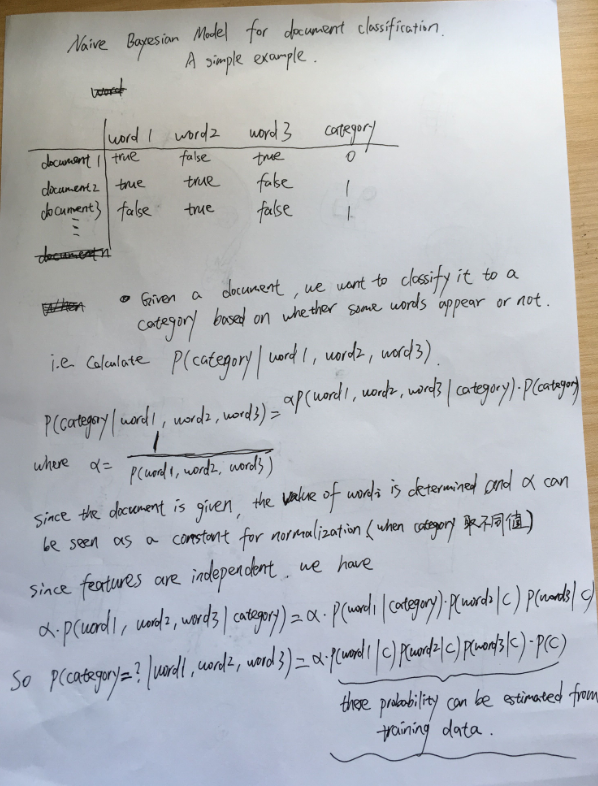 Naive Bayesian Model for document classification.
A simple example.
word
word 1 word2 word 3 category
document 1 true false true 0
document2 true true false 1
document3 false true false 1
⋮
document n
When • Given a document, we want to classify it to a
category based on whether some words appear or not.
i.e. Calculate P(category | word 1, word2, word3).
P(category | word1, word2, word3) = αP(word1, word2, word3 | category)·P(category)
where α = 1 / P(word1, word2, word3)
since the document is given, the value of wordi is determined and α can
be seen as a constant for normalization (when category 取不同值)
since features are independent. we have
α·P(word1, word2, word3 | category) = α·P(word1 | category)·P(word2 | C) P(word3 | C)
So P(category=? | word1, word2, word3) = α·P(word1 | C) P(word2 | C) P(word3 | C)·P(C)
these probability can be estimated from
training data.